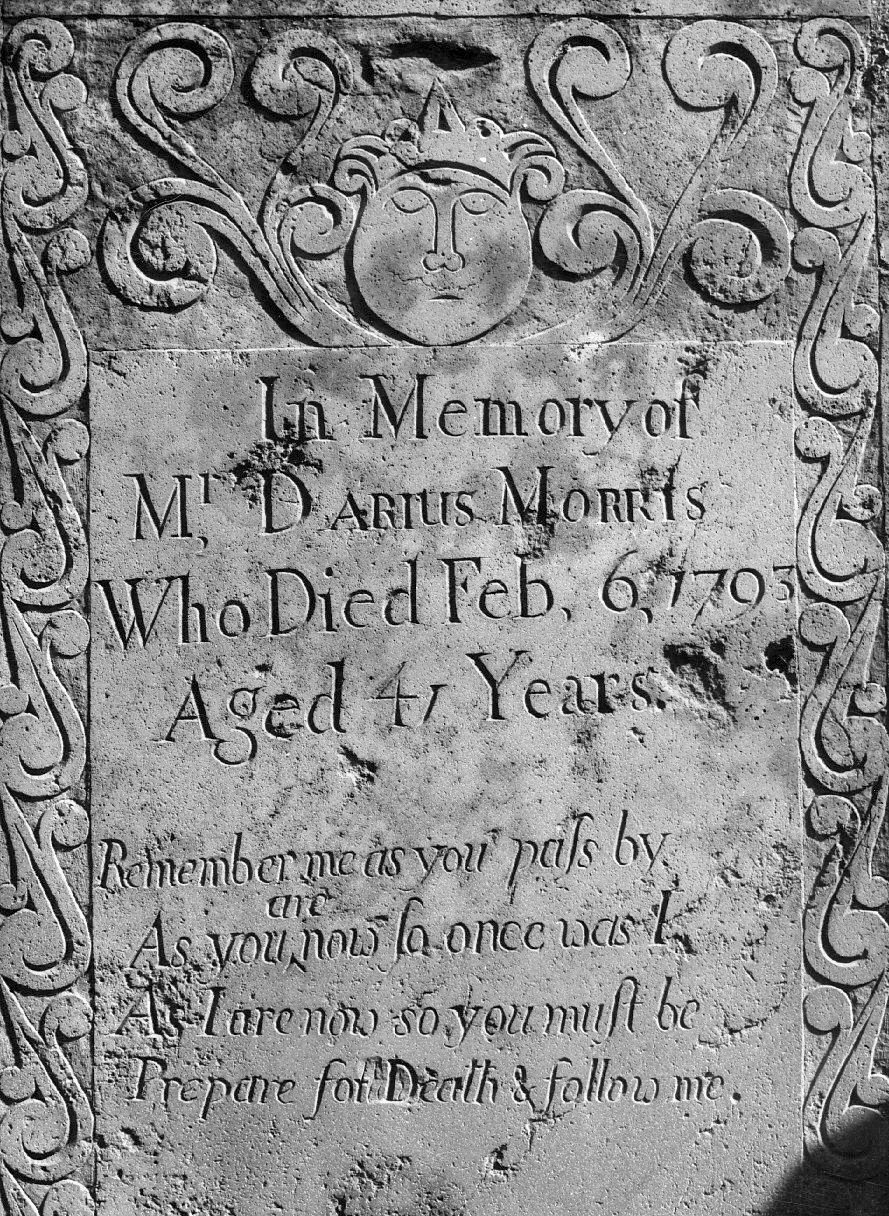 In Memory of
Mr, Darius Morris
Who Died Feb, 6, 1793
Aged 47 Years.
Remember me as you paſs by
are
As you now ſo once was I
As I are now so you muſt be
Prepare for Death & follow me.